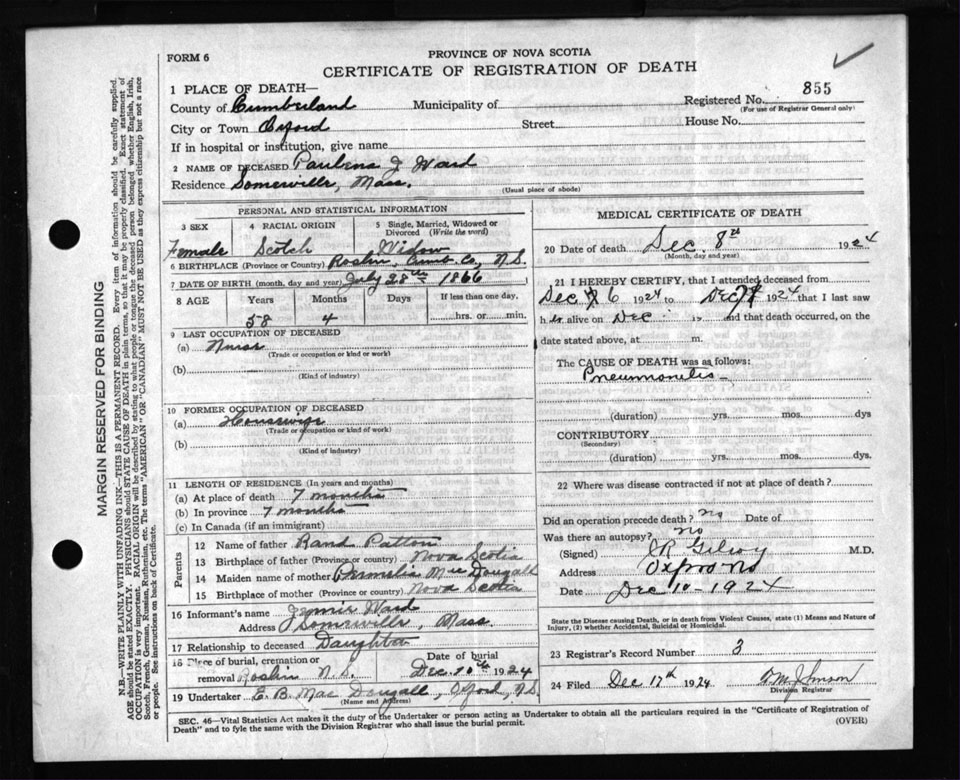 FORM 6
PROVINCE OF NOVA SCOTIA
CERTIFICATE OF REGISTRATION OF DEATH
1 PLACE OF DEATH—
Registered No. 855
(For use of Registrar General only)
County of Cumberland Municipality of
City or Town Oxford Street House No.
If in hospital or institution, give name
2 NAME OF DECEASED Paulena J Ward
Residence Somerville, Mass.
(Usual place of abode)
PERSONAL AND STATISTICAL INFORMATION
3 SEX 4 RACIAL ORIGIN 5 Single, Married, Widowed or Divorced (Write the word)
Female Scotch Widow
6 BIRTHPLACE (Province or Country) Roslin, Cumb. Co, N.S.
7 DATE OF BIRTH (month, day and year) July 28th 1866
8 AGE Years Months Days If less than one day.
58 4 hrs. or min.
9 LAST OCCUPATION OF DECEASED
(a) Nurse
(Trade or occupation or kind of work)
(b)
(Kind of industry)
10 FORMER OCCUPATION OF DECEASED
(a) Housewife
(Trade or occupation or kind of work)
(b)
(Kind of industry)
11 LENGTH OF RESIDENCE (In years and months)
(a) At place of death 7 months
(b) In province 7 months
(c) In Canada (if an immigrant)
Parents
12 Name of father Rand Patton
13 Birthplace of father (Province or country) Nova Scotia
14 Maiden name of mother Permelia MacDougall
15 Birthplace of mother (Province or country) Nova Scotia
16 Informant's name Jennie Ward
Address Somerville, Mass.
17 Relationship to deceased Daughter
18 Place of burial, cremation or removal Roslin N.S. Date of burial Dec. 10th 1924
19 Undertaker E. B. MacDougall, Oxford, N.S.
(Name and address)
MEDICAL CERTIFICATE OF DEATH
20 Date of death Dec. 8th 1924
(Month, day and year)
21 I HEREBY CERTIFY, that I attended deceased from
Dec 6 1924 to Dec 1924 that I last saw
h er alive on Dec 19 and that death occurred, on the
date stated above, at m.
The CAUSE OF DEATH was as follows:
Pneumonitis
(duration) yrs. mos. dys
CONTRIBUTORY
(Secondary)
(duration) yrs. mos. dys.
22 Where was disease contracted if not at place of death?
Did an operation precede death? no Date of
Was there an autopsy? no
(Signed) Gilroy M.D.
Address Oxford NS
Date Dec 10 - 1924
State the Disease causing Death, or in death from Violent Causes, state (1) Means and Nature of
Injury, (2) whether Accidental, Suicidal or Homicidal.
23 Registrar's Record Number 3
24 Filed Dec 17th 1924
Division Registrar
SEC. 46—Vital Statistics Act makes it the duty of the Undertaker or person acting as Undertaker to obtain all the particulars required in the "Certificate of Registration of
Death" and to fyle the same with the Division Registrar who shall issue the burial permit.
(OVER)
MARGIN RESERVED FOR BINDING
N.B.—WRITE PLAINLY WITH UNFADING INK—THIS IS A PERMANENT RECORD. Every item of information should be carefully supplied.
AGE should be stated EXACTLY. PHYSICIANS should STATE CAUSE OF DEATH in plain terms, so that it may be properly classified. Exact statement of
OCCUPATION is very important. RACIAL ORIGIN will be described by stating to what people or tongue the deceased person belonged whether English, Irish,
Scotch, French, German, Russian, Ruthenian, etc. The terms "AMERICAN" OR "CANADIAN" MUST NOT BE USED as they express citizenship but not a race
or people. See instructions on back of Certificate.